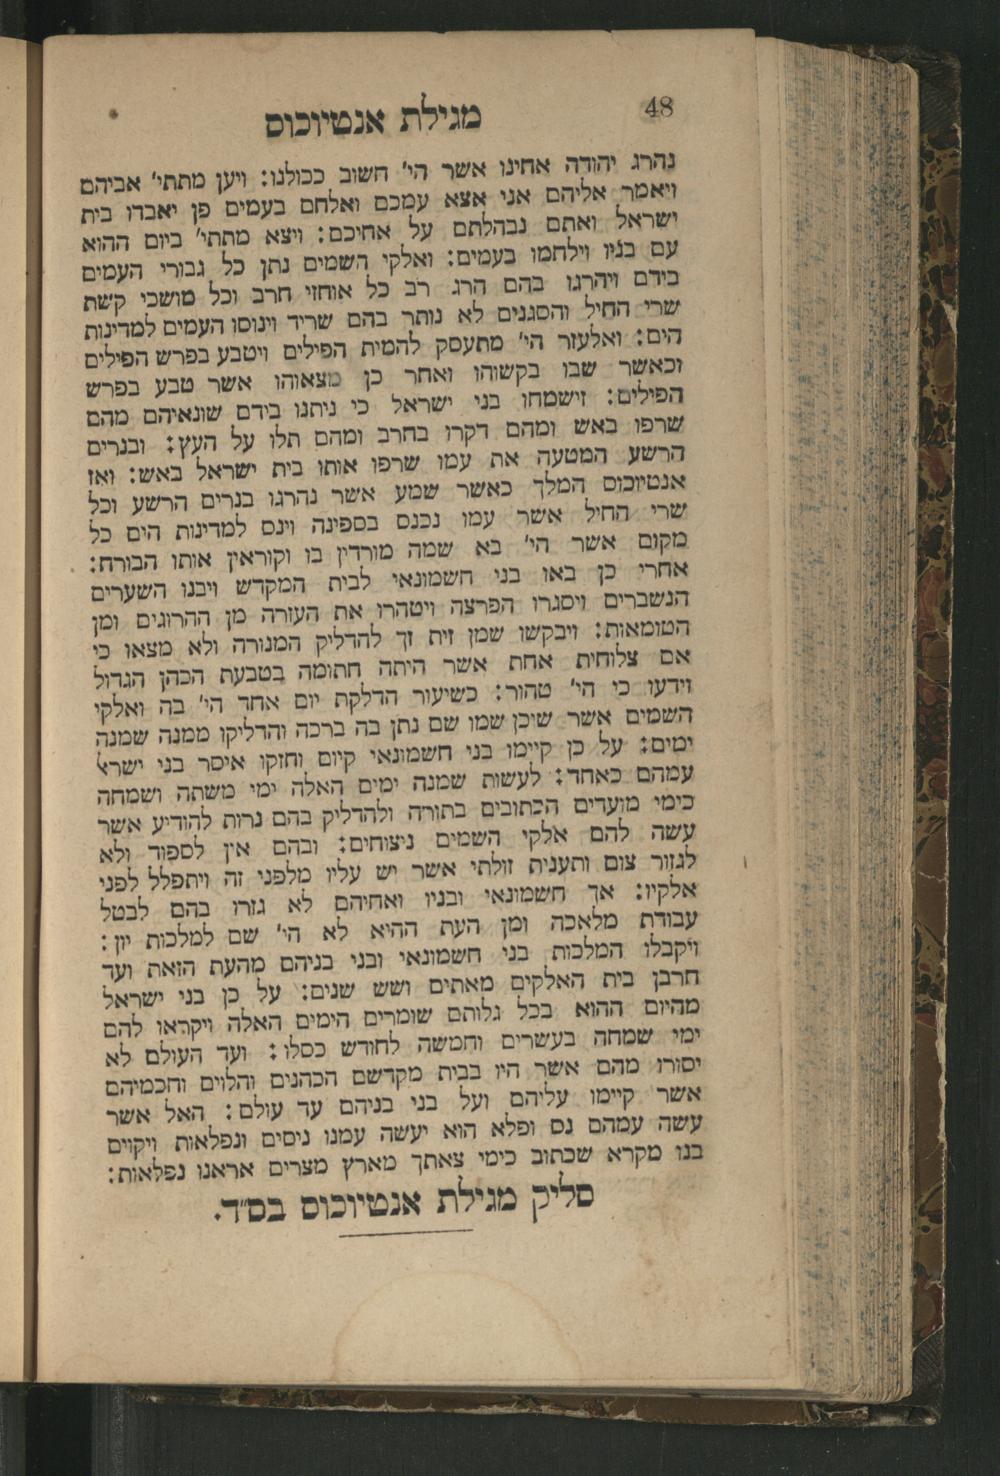 48
מגילת אנטיוכוס
נהרג יהודה אחינו אשר הי׳ חשוב ככולנו: ויען מתתי׳ אביהם
ויאמר אליהם אני אצא עמכם ואלחם בעמים פן יאבדו בית
ישראל ואתם נבהלתם על אחיכם: ויצא מתתי׳ ביום ההוא
עם בניו וילחמו בעמים: ואלקי השמים נתן כל גבורי העמים
בידם ויהרגו בהם הרג רב כל אוחזי חרב וכל מושכי קשת
שרי החיל והסגנים לא נותר בהם שריד וינוסו העמים למדינות
הים: ואלעזר הי׳ מתעסק להמית הפילים ויטבע בפרש הפילים
וכאשר שבו בקשוהו ואחר כן מצאוהו אשר טבע בפרש
הפילים: וישמחו בני ישראל כי ניתנו בידם שונאיהם מהם
שרפו באש ומהם דקרו בחרב ומהם תלו על העץ: ובנרים
הרשע המטעה את עמו שרפו אותו בית ישראל באש: ואז
אנטיוכוס המלך כאשר שמע אשר נהרגו בנרים הרשע וכל
שרי החיל אשר עמו נכנס בספינה וינס למדינות הים כל
מקום אשר הי׳ בא שמה מורדין בו וקוראין אותו הבורח:
אחרי כן באו בני חשמונאי לבית המקדש ויבנו השערים
הנשברים ויסגרו הפרצה ויטהרו את העזרה מן ההרוגים ומן
הטומאות: ויבקשו שמן זית זך להדליק המנורה ולא מצאו כי
אם צלוחית אחת אשר היתה חתומה בטבעת הכהן הגדול
וידעו כי הי׳ טהור: כשיעור הדלקת יום אחד הי׳ בה ואלקי
השמים אשר שיכן שמו שם נתן בה ברכה והדליקו ממנה שמנה
ימים: על כן קיימו בני חשמונאי קיום וחזקו איסר בני ישראל
עמהם כאחד: לעשות שמנה ימים האלה ימי משתה ושמחה
כימי מועדים הכתובים בתורה ולהדליק בהם נרות להודיע אשר
עשה להם אלקי השמים ניצוחים: ובהם אין לספוד ולא
לגזור צום ותענית זולתי אשר יש עליו מלפני זה ויתפלל לפני
אלקיו: אך חשמונאי ובניו ואחיהם לא גזרו בהם לבטל
עבודת מלאכה ומן העת ההיא לא הי׳ שם למלכות יון:
ויקבלו המלכות בני חשמונאי ובני בניהם מהעת הזאת ועד
חרבן בית האלקים מאתים ושש שנים: על כן בני ישראל
מהיום ההוא בכל גלותם שומרים הימים האלה ויקראו להם
ימי שמחה בעשרים וחמשה לחודש כסלו: ועד העולם לא
יסורו מהם אשר היו בבית מקדשם הכהנים והלוים וחכמיהם
אשר קיימו עליהם ועל בני בניהם עד עולם: האל אשר
עשה עמהם נס ופלא הוא יעשה עמנו ניסים ונפלאות ויקוים
בנו מקרא שכתוב כימי צאתך מארץ מצרים אראנו נפלאות:
סליק מגילת אנטיוכוס בס״ד.